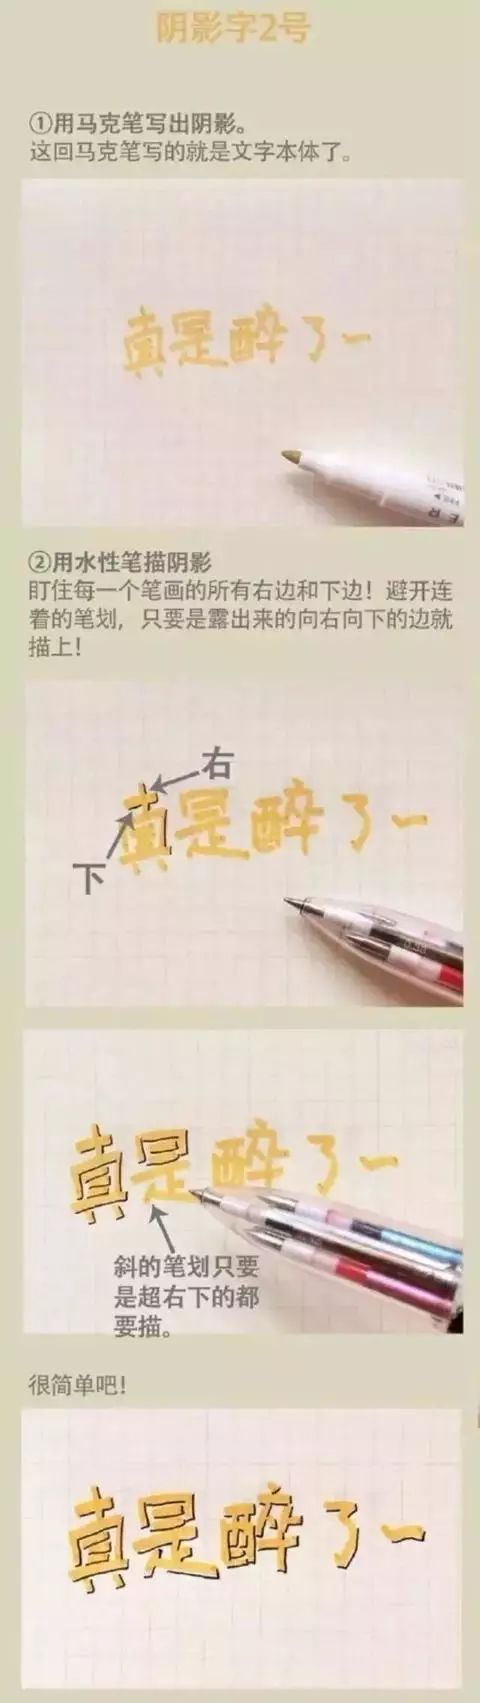 阴影字2号
①用马克笔写出阴影。
这回马克笔写的就是文字本体了。
真是醉了一
②用水性笔描阴影
盯住每一个笔画的所有右边和下边！避开连
着的笔划，只要是露出来的向右向下的边就
描上！
右
真是醉了一
下
真是醉了一
斜的笔划只要
是超右下的都
要描。
很简单吧！
真是醉了一